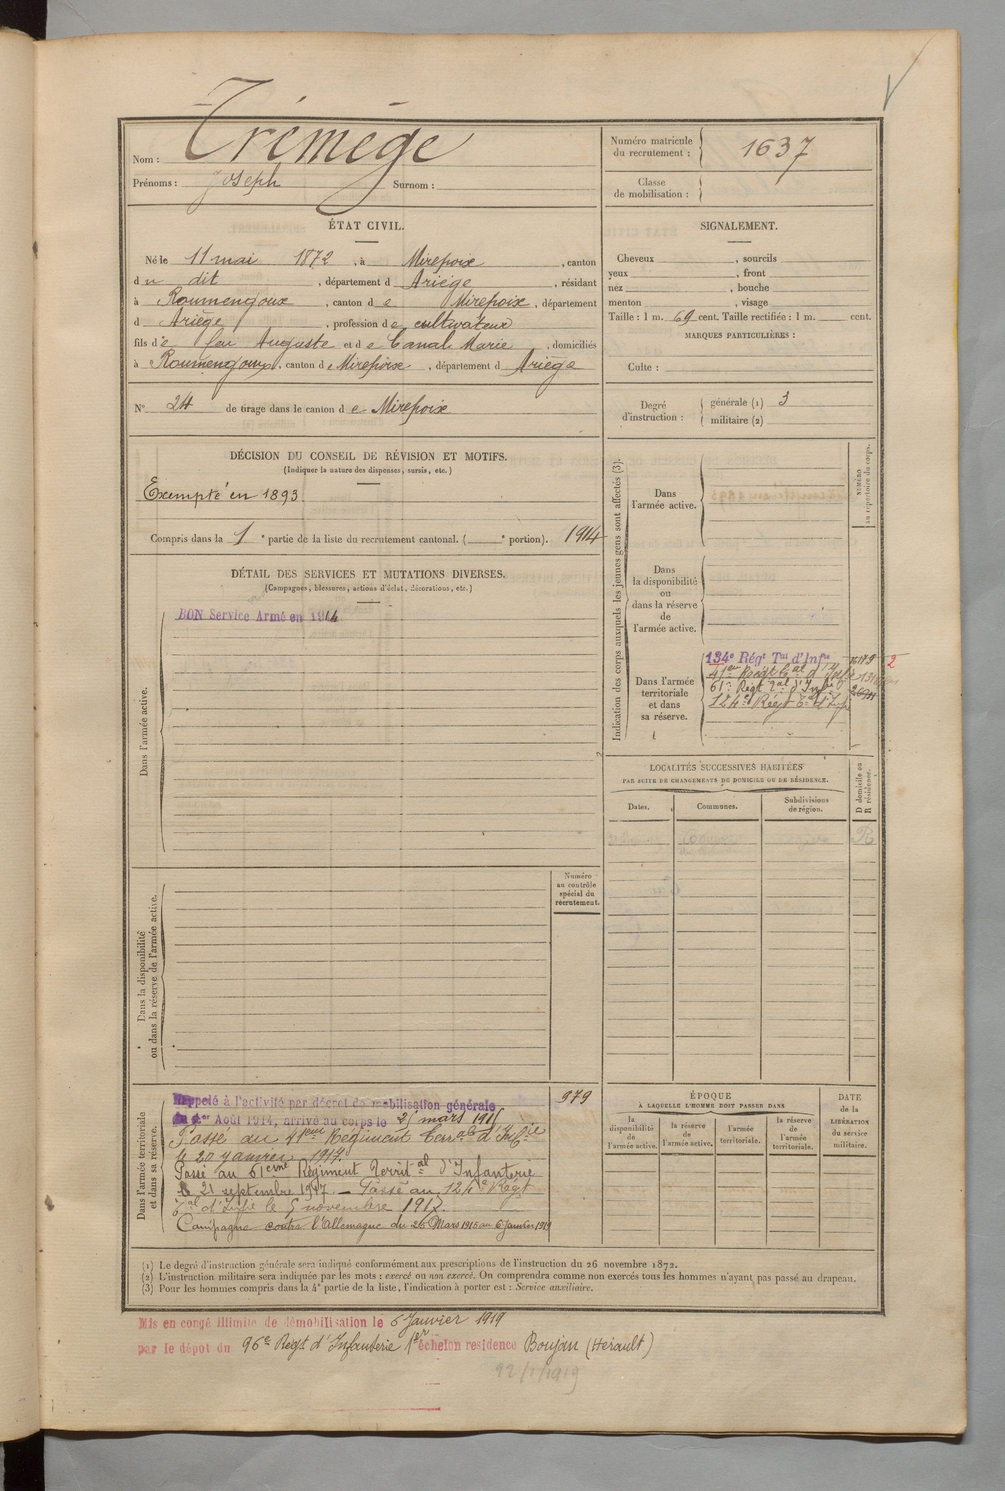 Nom : Trémège
Prénoms : Joseph Surnom :
Numéro matricule
du recrutement : 1637
Classe
de mobilisation :
ÉTAT CIVIL.
Né le 11 mai 1872, à Mirepoix, canton
du dit, département d Ariège, résidant
à Roumengoux, canton de Mirepoix, département
d Ariège, profession de cultivateur
fils de feu Auguste et de Canal Marie, domiciliés
à Roumengoux, canton de Mirepoix, département d Ariège
N° 24 de tirage dans le canton de Mirepoix
SIGNALEMENT.
Cheveux , sourcils
yeux , front
nez , bouche
menton , visage
Taille : 1 m. 69 cent. Taille rectifiée : 1 m. cent.
MARQUES PARTICULIÈRES :
Culte :
Degré
d'instruction :
générale (1) 3
militaire (2)
DÉCISION DU CONSEIL DE RÉVISION ET MOTIFS.
(Indiquer la nature des dispenses, sursis, etc.)
Exempté en 1893
Compris dans la 1 e partie de la liste du recrutement cantonal. ( e portion). 1914
DÉTAIL DES SERVICES ET MUTATIONS DIVERSES.
(Campagnes, blessures, actions d'éclat, décorations, etc.)
Dans l'armée active.
BON Service Armé en 1914
Indication des corps auxquels les jeunes gens sont affectés (3).
NUMÉRO
au répertoire du corps.
Dans
l'armée active.
Dans
la disponibilité
ou
dans la réserve
de
l'armée active.
Dans l'armée
territoriale
et dans
sa réserve.
134e Régt Tal d'Infie
41eme Régt d'Infie
61e Régt d'Infie
124e Régt d'Infie
2
LOCALITÉS SUCCESSIVES HABITÉES
PAR SUITE DE CHANGEMENTS DE DOMICILE OU DE RÉSIDENCE.
Dates.
Communes.
Subdivisions
de région.
D domicile ou
R résidence.
Dans la disponibilité
ou dans la réserve de l'armée active.
Numéro
au contrôle
spécial du
recrutement.
Dans l'armée territoriale
et dans sa réserve.
979
Rappelé à l'activité par décret de mobilisation générale
du 1er Août 1914, arrivé au corps le 25 mars 1915
Passé au 41eme Régiment d'Infie
le 20 janvier 1917.
Passé au 61eme Régiment Territal d'Infanterie
le 21 septembre 1917 – Passé au 124e Régt
Tal d'Infie le 5 novembre 1917.
Campagne contre l'Allemagne du 26 Mars 1915 au 6 janvier 1919
ÉPOQUE
À LAQUELLE L'HOMME DOIT PASSER DANS
la
disponibilité
de
l'armée
active.
la réserve
de
l'armée active.
l'armée
territoriale.
la
réserve de
l'armée
territoriale.
DATE
de la
LIBÉRATION
du service
militaire.
(1) Le degré d'instruction générale sera indiqué conformément aux prescriptions de l'instruction du 26 novembre 1872.
(2) L'instruction militaire sera indiquée par les mots : exercé ou non exercé. On comprendra comme non exercés tous les hommes n'ayant pas passé au drapeau.
(3) Pour les hommes compris dans la 4e partie de la liste, l'indication à porter est : Service auxiliaire.
Mis en congé illimité de démobilisation le 6 Janvier 1919
par le dépôt du 96e Régt d'Infanterie 1er échelon residence Boujan (Hérault)